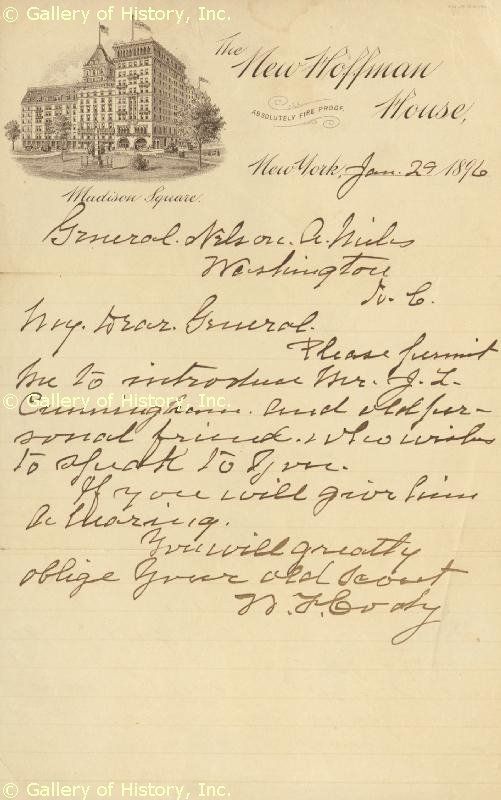 © Gallery of History, Inc.
The
New Hoffman
House,
ABSOLUTELY FIRE PROOF.
New York, Jan. 29 1896
Madison Square.
© Gallery of History, Inc.
General. Nelson. A. Miles
Washington
D. C.
My. Dear. General.
Please permit
me to introduce Mr. J. L.
© Gallery of History, Inc.
Cunningham. and old per-
sonal friend. who wishes
to speak to you.
If you will give him
a hearing.
You will greatly
© Gallery of History, Inc.
oblige your old scout
W. F. Cody
© Gallery of History, Inc.